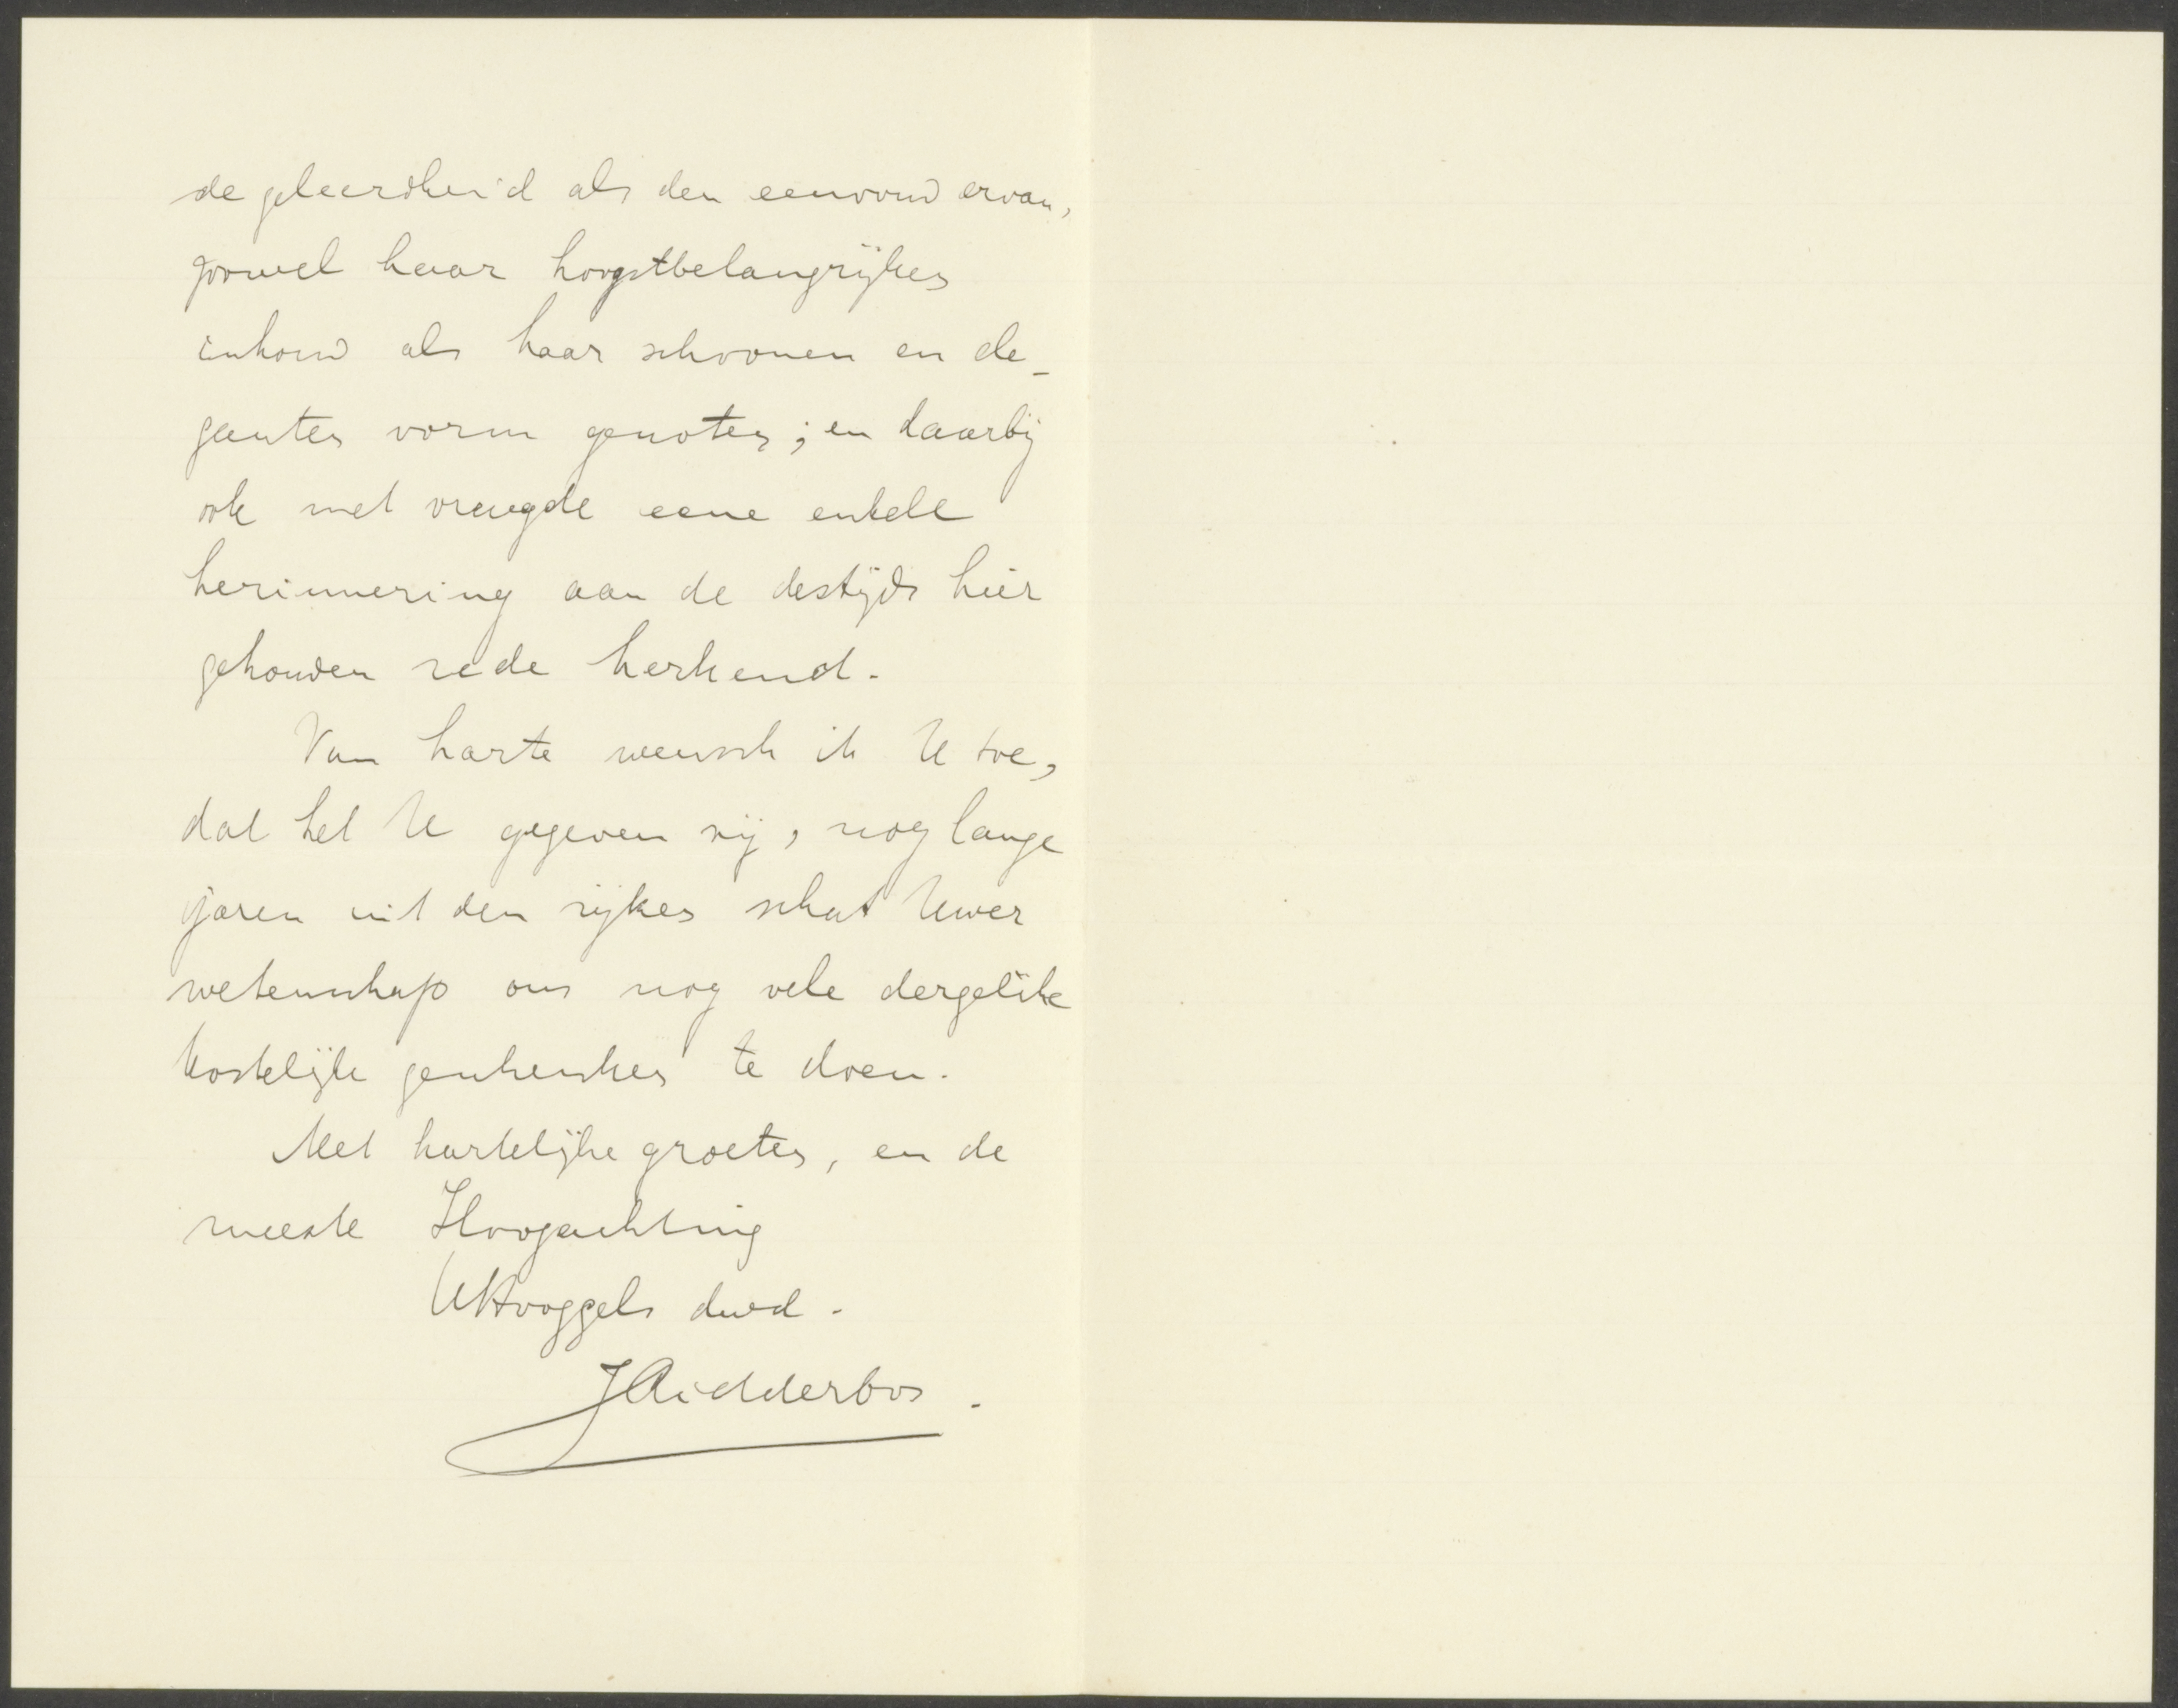 de geleerdheid als den eenvoud ervan,
zoowel haar hoogstbelangrijken
inhoud als haar schoonen en ele-
ganten vorm genoten; en daarbij
ook met vreugde eene enkele
herinnering aan de destijds hier
gehouden rede herkend.
Van harte wensch ik U toe,
dat het U gegeven zij, nog lange
jaren uit den rijken schat Uwer
wetenschap ons nog vele dergelijke
kostelijke geschenken te doen.
Met hartelijke groeten, en de
meeste Hoogachting
UHooggel. dwd.
JRidderbos.